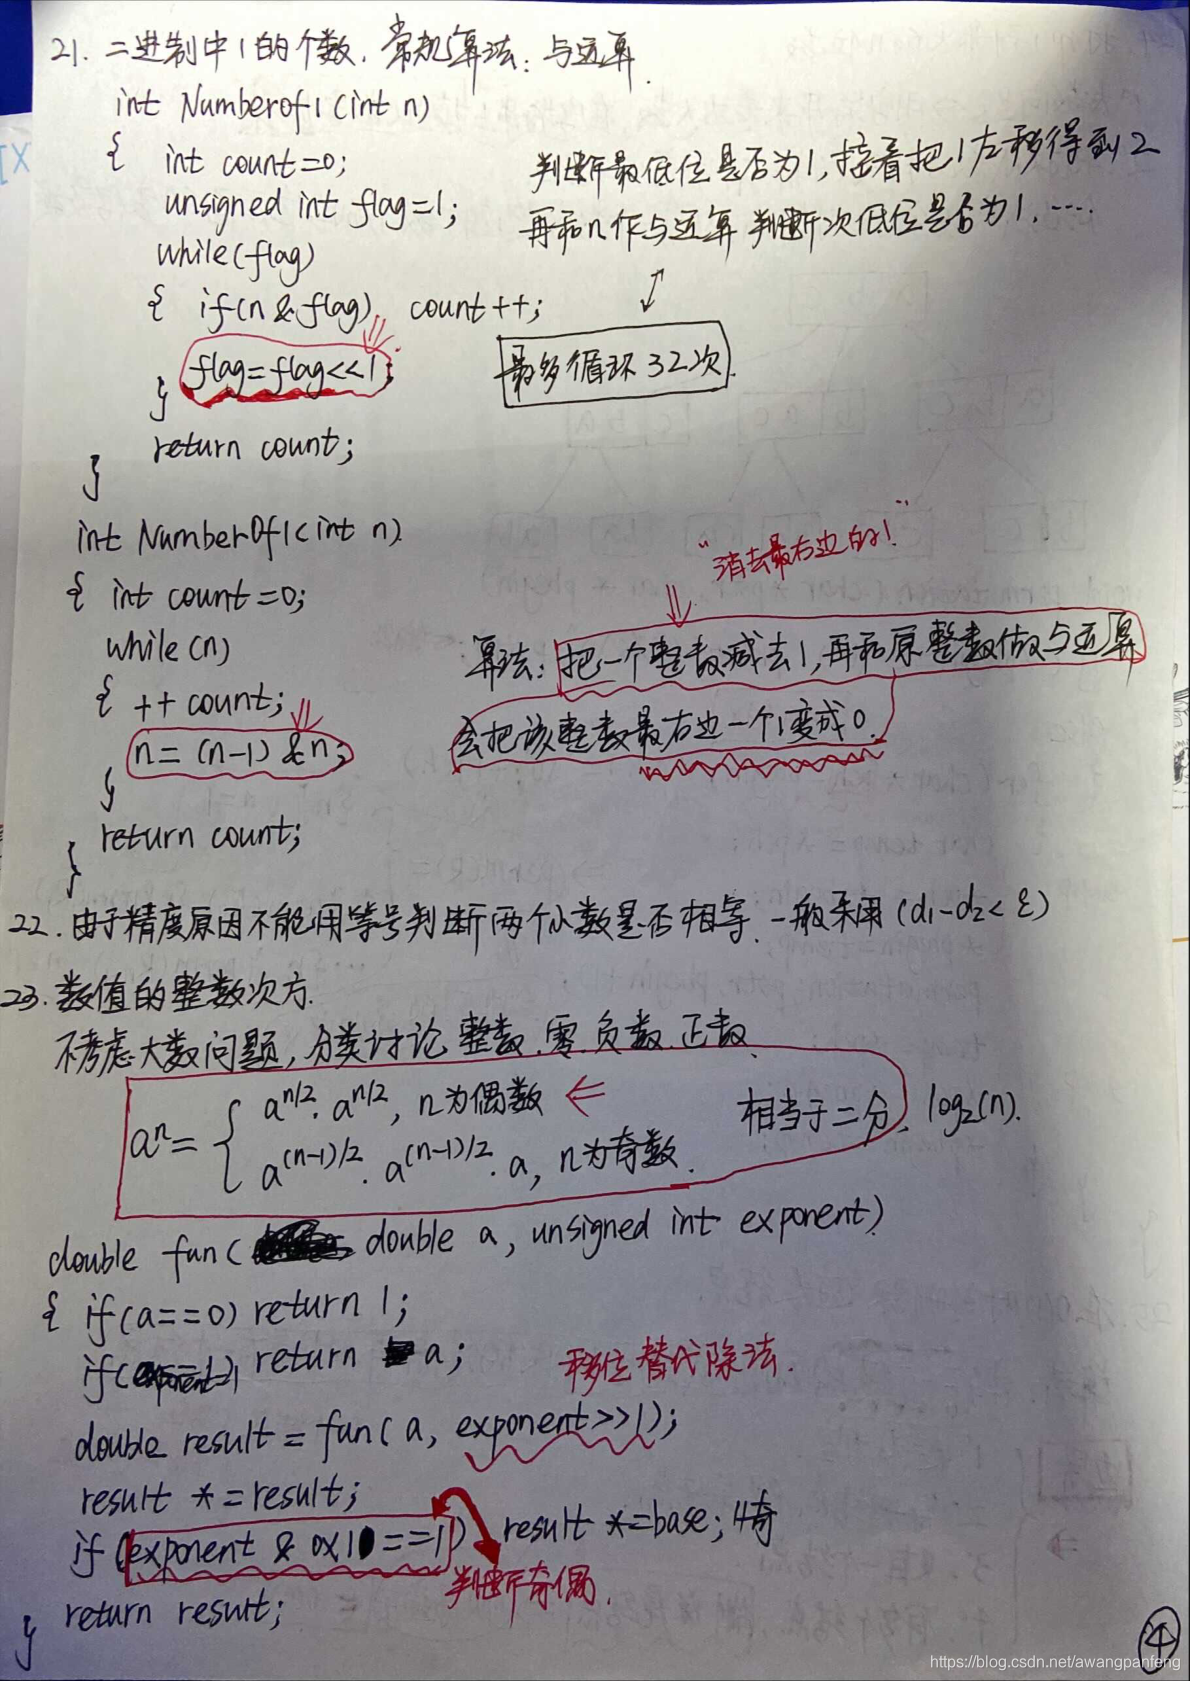 21. 二进制中1的个数. 常规算法: 与运算.
int Numberof1(int n)
{ int count=0;
判断最低位是否为1,接着把1左移得到2
unsigned int flag=1;
再和n作与运算 判断次低位是否为1. ….
while(flag)
{ if(n & flag) count++;
flag=flag<<1;
最多循环32次.
}
return count;
}
int NumberOf1(int n)
"消去最右边的1."
{ int count=0;
while(n)
算法: 把一个整数减去1,再和原整数做与运算
{ ++count;
会把该整数最右边一个1变成0.
n=(n-1)&n;
}
return count;
}
22. 由于精度原因不能用等号判断两个小数是否相等. 一般采用(d1-d2<ε)
23. 数值的整数次方.
不考虑大数问题, 分类讨论 整数.零.负数.正数.
aⁿ= { a^n/2 · a^n/2, n为偶数
a^(n-1)/2 · a^(n-1)/2 · a, n为奇数.
相当于二分, log2(n).
double fun( double a, unsigned int exponent)
{ if(a==0) return 1;
if(exponent==1) return a;
移位替代除法.
double result = fun(a, exponent>>1);
result *=result;
if(exponent & 0x1==1) result *=base; 奇
判断奇偶.
return result;
}
4
https://blog.csdn.net/awangpanfeng